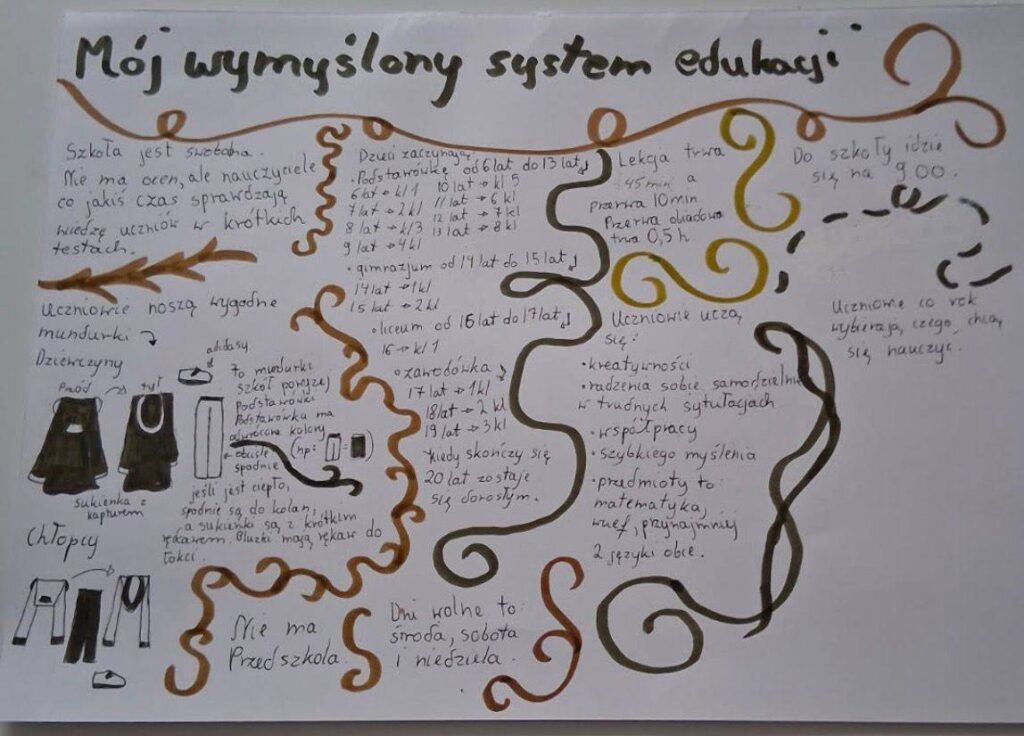 Mój wymyślony system edukacji
Szkoła jest swobodna.
Nie ma ocen, ale nauczyciele
co jakiś czas sprawdzają
wiedzę uczniów w krótkich
testach.
Uczniowie noszą wygodne
mundurki
Dziewczyny
Przód
tył
adidasy
sukienka z
kapturem
obcisłe
spodnie
To mundurki
szkół powyżej
Podstawówki
Podstawówka ma
odwrócone kolory
(np: = )
jeśli jest ciepło,
spodnie są do kolan,
a sukienki są z krótkim
rękawem. Bluzki mają rękaw do
łokci.
Chłopcy
Nie ma
Przedszkola.
Dzieci zaczynają:
• Podstawówkę od 6 lat do 13 lat
6 lat → kl 1 10 lat → kl 5
7 lat → 2 kl 11 lat → 6 kl
8 lat → kl 3 12 lat → 7 kl
9 lat → 4 kl 13 lat → 8 kl
• gimnazjum od 14 lat do 15 lat
14 lat → 1 kl
15 lat → 2 kl
• liceum od 16 lat do 17 lat
16 → kl 1
• zawodówka
17 lat → 1 kl
18 lat → 2 kl
19 lat → 3 kl
Kiedy skończy się
20 lat zostaje
się dorosłym.
Dni wolne to:
środa, sobota
i niedziela.
Lekcja trwa
45 min a
przerwa 10 min
Przerwa obiadowa
trwa 0,5 h.
Uczniowie uczą
się:
• kreatywności
• radzenia sobie samodzielnie
w trudnych sytułacjach
• współpracy
• szybkiego myślenia
• przedmioty to:
matematyka,
wuef, przynajmniy
2 języki obce.
Do szkoły idzie
się na 9.00.
Uczniowie co rok
wybierają, czego chcą
się nauczyć.